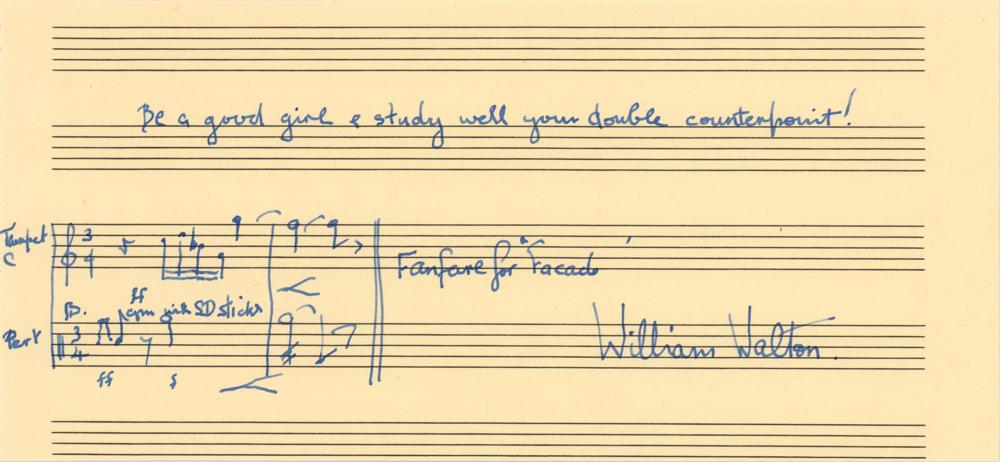 Be a good girl & study well your double counterpoint!
Trumpet
C
3
4
Fanfare for "Facade"
ff
B. cym with SD sticks
Perc
3
4
ff
f
William Walton.